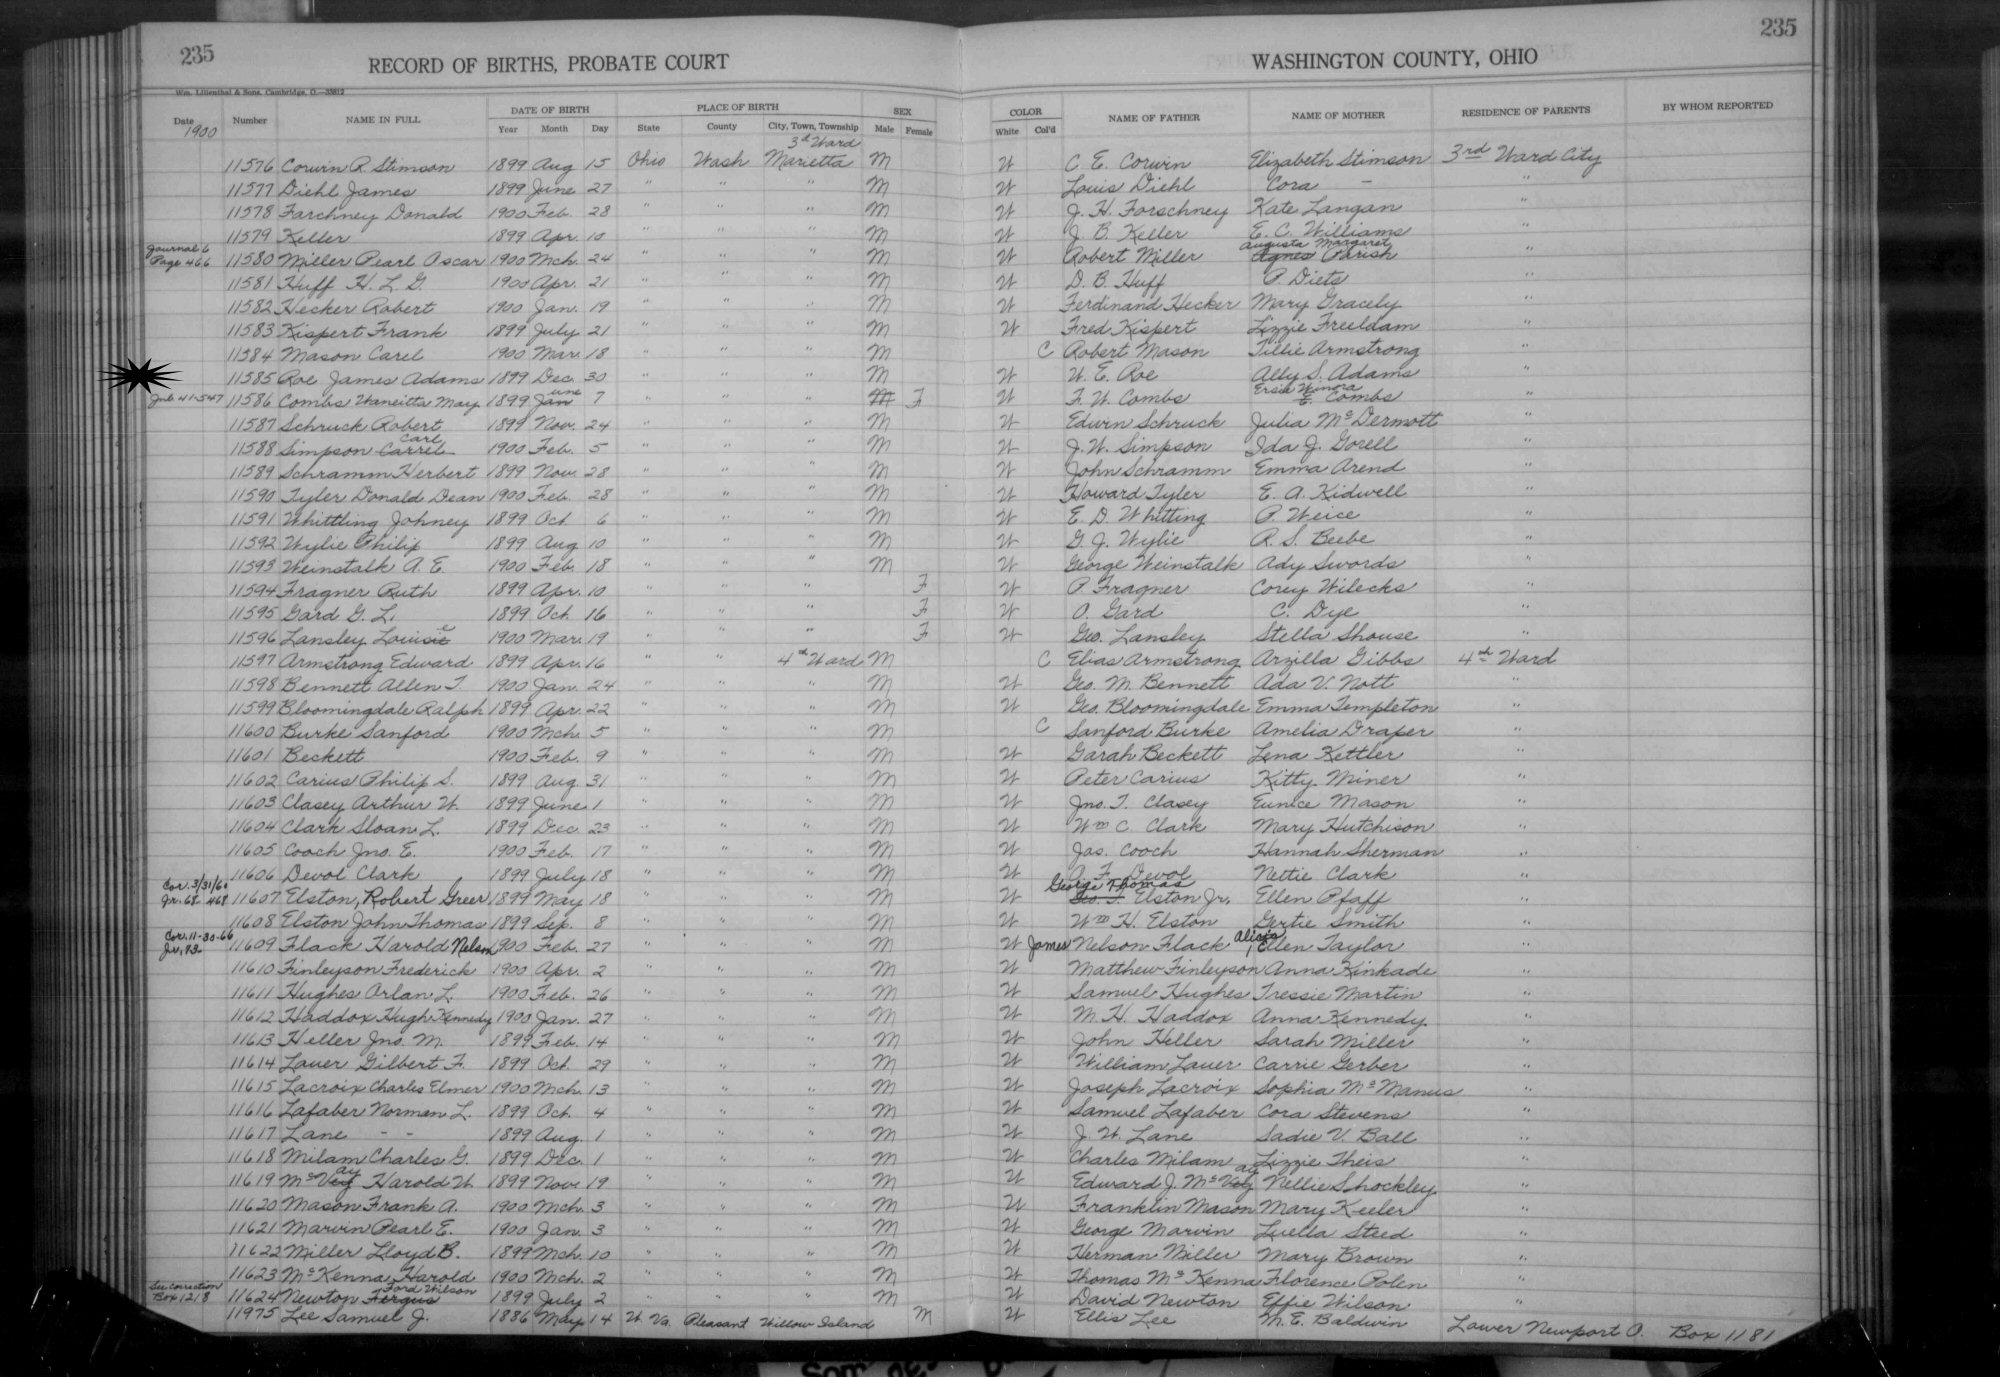 235 235
RECORD OF BIRTHS, PROBATE COURT WASHINGTON COUNTY, OHIO
Wm. Lilienthal & Sons, Cambridge, O.—33812
Date Number NAME IN FULL DATE OF BIRTH PLACE OF BIRTH SEX COLOR NAME OF FATHER NAME OF MOTHER RESIDENCE OF PARENTS BY WHOM REPORTED
Year Month Day State County City, Town, Township Male Female White Col'd
1900 3d Ward
11576 Corwin R. Stimson 1899 Aug 15 Ohio Wash Marietta M W C. E. Corwin Elizabeth Stimson 3rd Ward City
11577 Diehl James 1899 June 27 " " " M W Louis Diehl Cora - "
11578 Farchney Donald 1900 Feb. 28 " " " M W J. H. Forschney Kate Langan "
11579 Keller 1899 Apr. 10 " " " M W J. B. Keller E. C. Williams
Journal 6 Augusta Margaret
Page 466 11580 Miller Pearl Oscar 1900 Mch. 24 " " " M W Robert Miller Agnes Parish "
11581 Huff H. L. G. 1900 Apr. 21 " " " M W D. B. Huff P. Diets "
11582 Hecker Robert 1900 Jan. 19 " " " M W Ferdinand Hecker Mary Gracely "
11583 Kispert Frank 1899 July 21 " " " M W Fred Kispert Lizzie Freeldam "
11584 Mason Carel 1900 Mar. 18 " " " M C Robert Mason Tillie Armstrong "
11585 Roe James Adams 1899 Dec. 30 " " " M W W. E. Roe Ally S. Adams "
une Ersie Winora
Jnl. 41-547 11586 Combs Waneitta May 1899 Jan 7 " " " M F W F. W. Combs E. Combs "
11587 Schruck Robert 1899 Nov. 24 " " " M W Edwin Schruck Julia McDermott "
Carl
11588 Simpson Carrel 1900 Feb. 5 " " " M W J. W. Simpson Ida J. Gorell "
11589 Schramm Herbert 1899 Nov. 28 " " " M W John Schramm Emma Arend "
11590 Tyler Donald Dean 1900 Feb. 28 " " " M W Howard Tyler E. A. Kidwell "
11591 Whittling Johney 1899 Oct 6 " " " M W E. D. Whitting P. Weice "
11592 Wylie Philip 1899 Aug 10 " " " M W G. J. Wylie R. S. Beebe "
11593 Weinstalk A. E. 1900 Feb. 18 " " " M W George Weinstalk Ady Swords "
11594 Fragner Ruth 1899 Apr. 10 " " " F W P. Fragner Corey Wilecks "
11595 Gard G. L. 1899 Oct. 16 " " " F W O. Gard C. Dye "
11596 Lansley Louisie 1900 Mar. 19 " " " F W Geo. Lansley Stella Shouse "
11597 Armstrong Edward 1899 Apr. 16 " " 4th Ward M C Elias Armstrong Arzilla Gibbs 4th Ward
11598 Bennett Allen T. 1900 Jan. 24 " " " M W Geo. M. Bennett Ada V. Nott "
11599 Bloomingdale Ralph 1899 Apr. 22 " " " M W Geo. Bloomingdale Emma Templeton "
11600 Burke Sanford 1900 Mch. 5 " " " M C Sanford Burke Amelia Draper "
11601 Beckett 1900 Feb. 9 " " " M W Garah Beckett Lena Kettler "
11602 Carius Philip S. 1899 Aug. 31 " " " M W Peter Carius Kitty Miner "
11603 Clasey Arthur W. 1899 June 1 " " " M W Jno. T. Clasey Eunice Mason "
11604 Clark Sloan L. 1899 Dec. 23 " " " M W Wm C. Clark Mary Hutchison "
11605 Cooch Jno. E. 1900 Feb. 17 " " " M W Jas. Cooch Hannah Sherman "
11606 Devol Clark 1899 July 18 " " " M W A. F. Devol Nettie Clark "
Cor. 3/31/60 George Thomas
Jr. 68-468 11607 Elston, Robert Greer 1899 May 18 " " " M W Geo. T. Elston Jr. Ellen Pfaff "
11608 Elston John Thomas 1899 Sep. 8 " " " M W Wm H. Elston Gertie Smith "
Cor. 11-30-66 Alicia
Jr. 83- 11609 Flack Harold Nelson 1900 Feb. 27 " " " M W James Nelson Flack Ellen Taylor "
11610 Finleyson Frederick 1900 Apr. 2 " " " M W Matthew Finleyson Anna Kinkade "
11611 Hughes Orlan L. 1900 Feb. 26 " " " M W Samuel Hughes Tressie Martin "
11612 Haddox Hugh Kennedy 1900 Jan. 27 " " " M W M. H. Haddox Anna Kennedy "
11613 Heller Jno. M. 1899 Feb. 14 " " " M W John Heller Sarah Miller "
11614 Lauer Gilbert F. 1899 Oct. 29 " " " M W William Lauer Carrie Gerber "
11615 Lacroix Charles Elmer 1900 Mch. 13 " " " M W Joseph Lacroix Sophia McManus "
11616 Lafaber Norman L. 1899 Oct 4 " " " M W Samuel Lafaber Cora Stevens "
11617 Lane - - 1899 Aug. 1 " " " M W J. W. Lane Sadie V. Ball "
11618 Milam Charles G. 1899 Dec. 1 " " " M W Charles Milam Lizzie Theis "
ay ay
11619 McVey Harold W. 1899 Nov. 19 " " " M W Edward J. McVey Nellie Shockley "
11620 Mason Frank A. 1900 Mch. 3 " " " M W Franklin Mason Mary Keeler "
11621 Marvin Pearl E. 1900 Jan. 3 " " " M W George Marvin Luella Steed "
11622 Miller Lloyd B. 1899 Mch. 10 " " " M W Herman Miller Mary Brown "
11623 McKenna Harold 1900 Mch. 2 " " " M W Thomas McKenna Florence Polen "
See correction Ford Wilson
Box 1218 11624 Newton Fergus 1899 July 2 " " " M W David Newton Effie Wilson "
11975 Lee Samuel J. 1886 May 14 W. Va. Pleasant Willow Island M W Ellis Lee M. E. Baldwin Lower Newport O. Box 1181